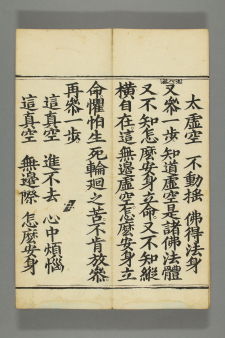 太虛空 不動搖 佛得法身
又叅一步知道虛空是諸佛法體
又不知怎麼安身立命又不知縱
橫自在這無邊虛空怎麼安身立
命懼怕生死輪廻之苦不肯放叅
再叅一步
這真空 進不去 心中煩惱
這真空 無邊際 怎麼安身